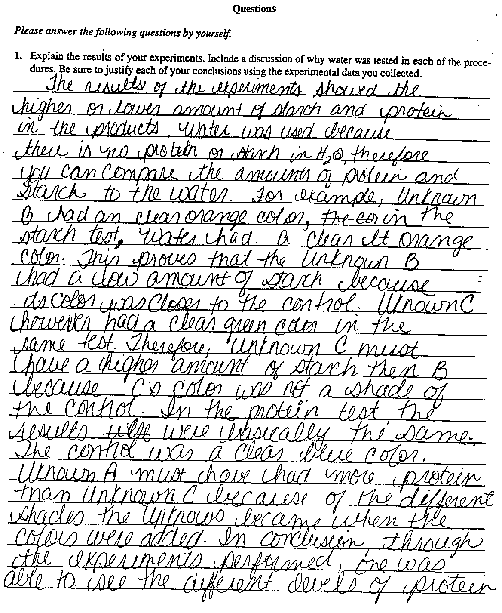 Questions
Please answer the following questions by yourself.
1. Explain the results of your experiments. Include a discussion of why water was tested in each of the proce-
dures. Be sure to justify each of your conclusions using the experimental data you collected.
The results of the experiments showed the
higher or lower amount of starch and protein
in the products. Water was used because
there is no protein or starch in H2O, therefore
you can compare the amounts of protein and
starch to the water. For example, Unknown
B had an clear orange color, in the
starch test, water had a clear lt orange
color. This proves that the Unknown B
had a low amount of starch because
its color was closer to the control. Unown C
however had a clear green color in the
same test. Therefore, Unknown C must
have a higher amount of starch then B
because C's color was not a shade of
the control. In the protein test the
results were basically the same.
The control was a clear blue color.
Unknown A must have had more protein
than Unknown C because of the different
shades the unknows became when the
colors were added. In conclusion through
the experiments performed, one was
able to see the different levels of protein